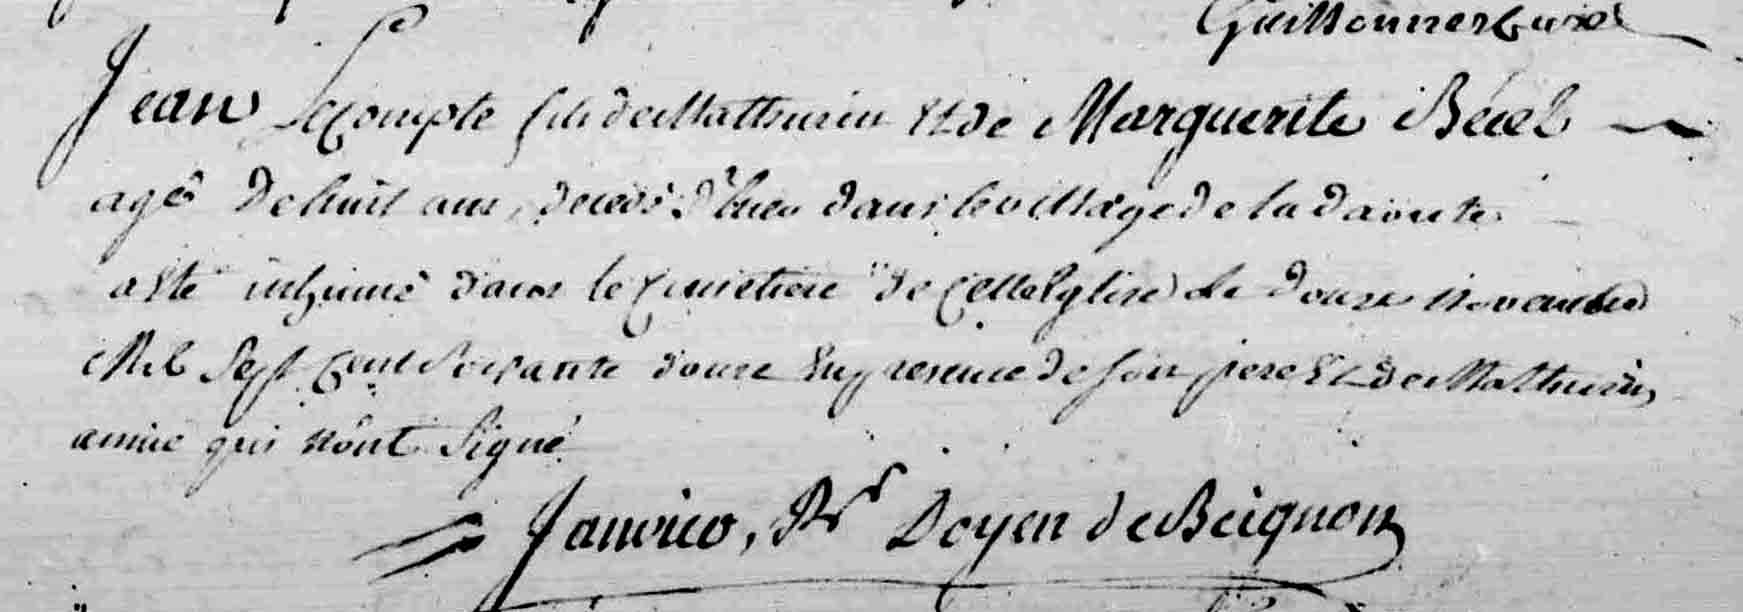 Guillonner Curé
Jean Lecompte fils de Mathurin et de Marguerite Bécel
agé de huit ans, decedé d'hier dans le village de la
a eté inhumé dans le cimetiere de cette Eglise le douze novembre
Mil Sept Cent Soixante douze En presence de son pere Et de Mathurin
amicé qui n'ônt Signé
Janvier, Rr Doyen de Beignon